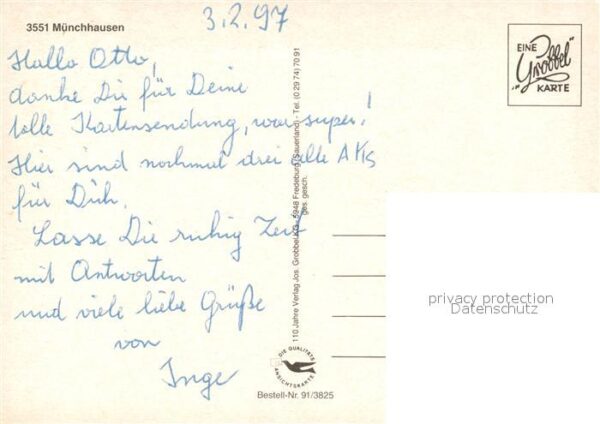 3551 Münchhausen
3.2.97
Hallo Otto,
danke Dir für Deine
tolle Kartensendung, war super!
Hier sind nochmal drei alte AKs
für Dich.
Lasse Dir ruhig Zeit
mit Antworten
und viele liebe Grüße
von
Inge
EINE
"Grobbel"
KARTE
110 Jahre Verlag Jos. Grobbel KG · 5948 Fredeburg (Sauerland) - Tel. (0 29 74) 70 91
ges. gesch.
DIE QUALITÄTS
ANSICHTSKARTE
Bestell-Nr. 91/3825
privacy protection
Datenschutz